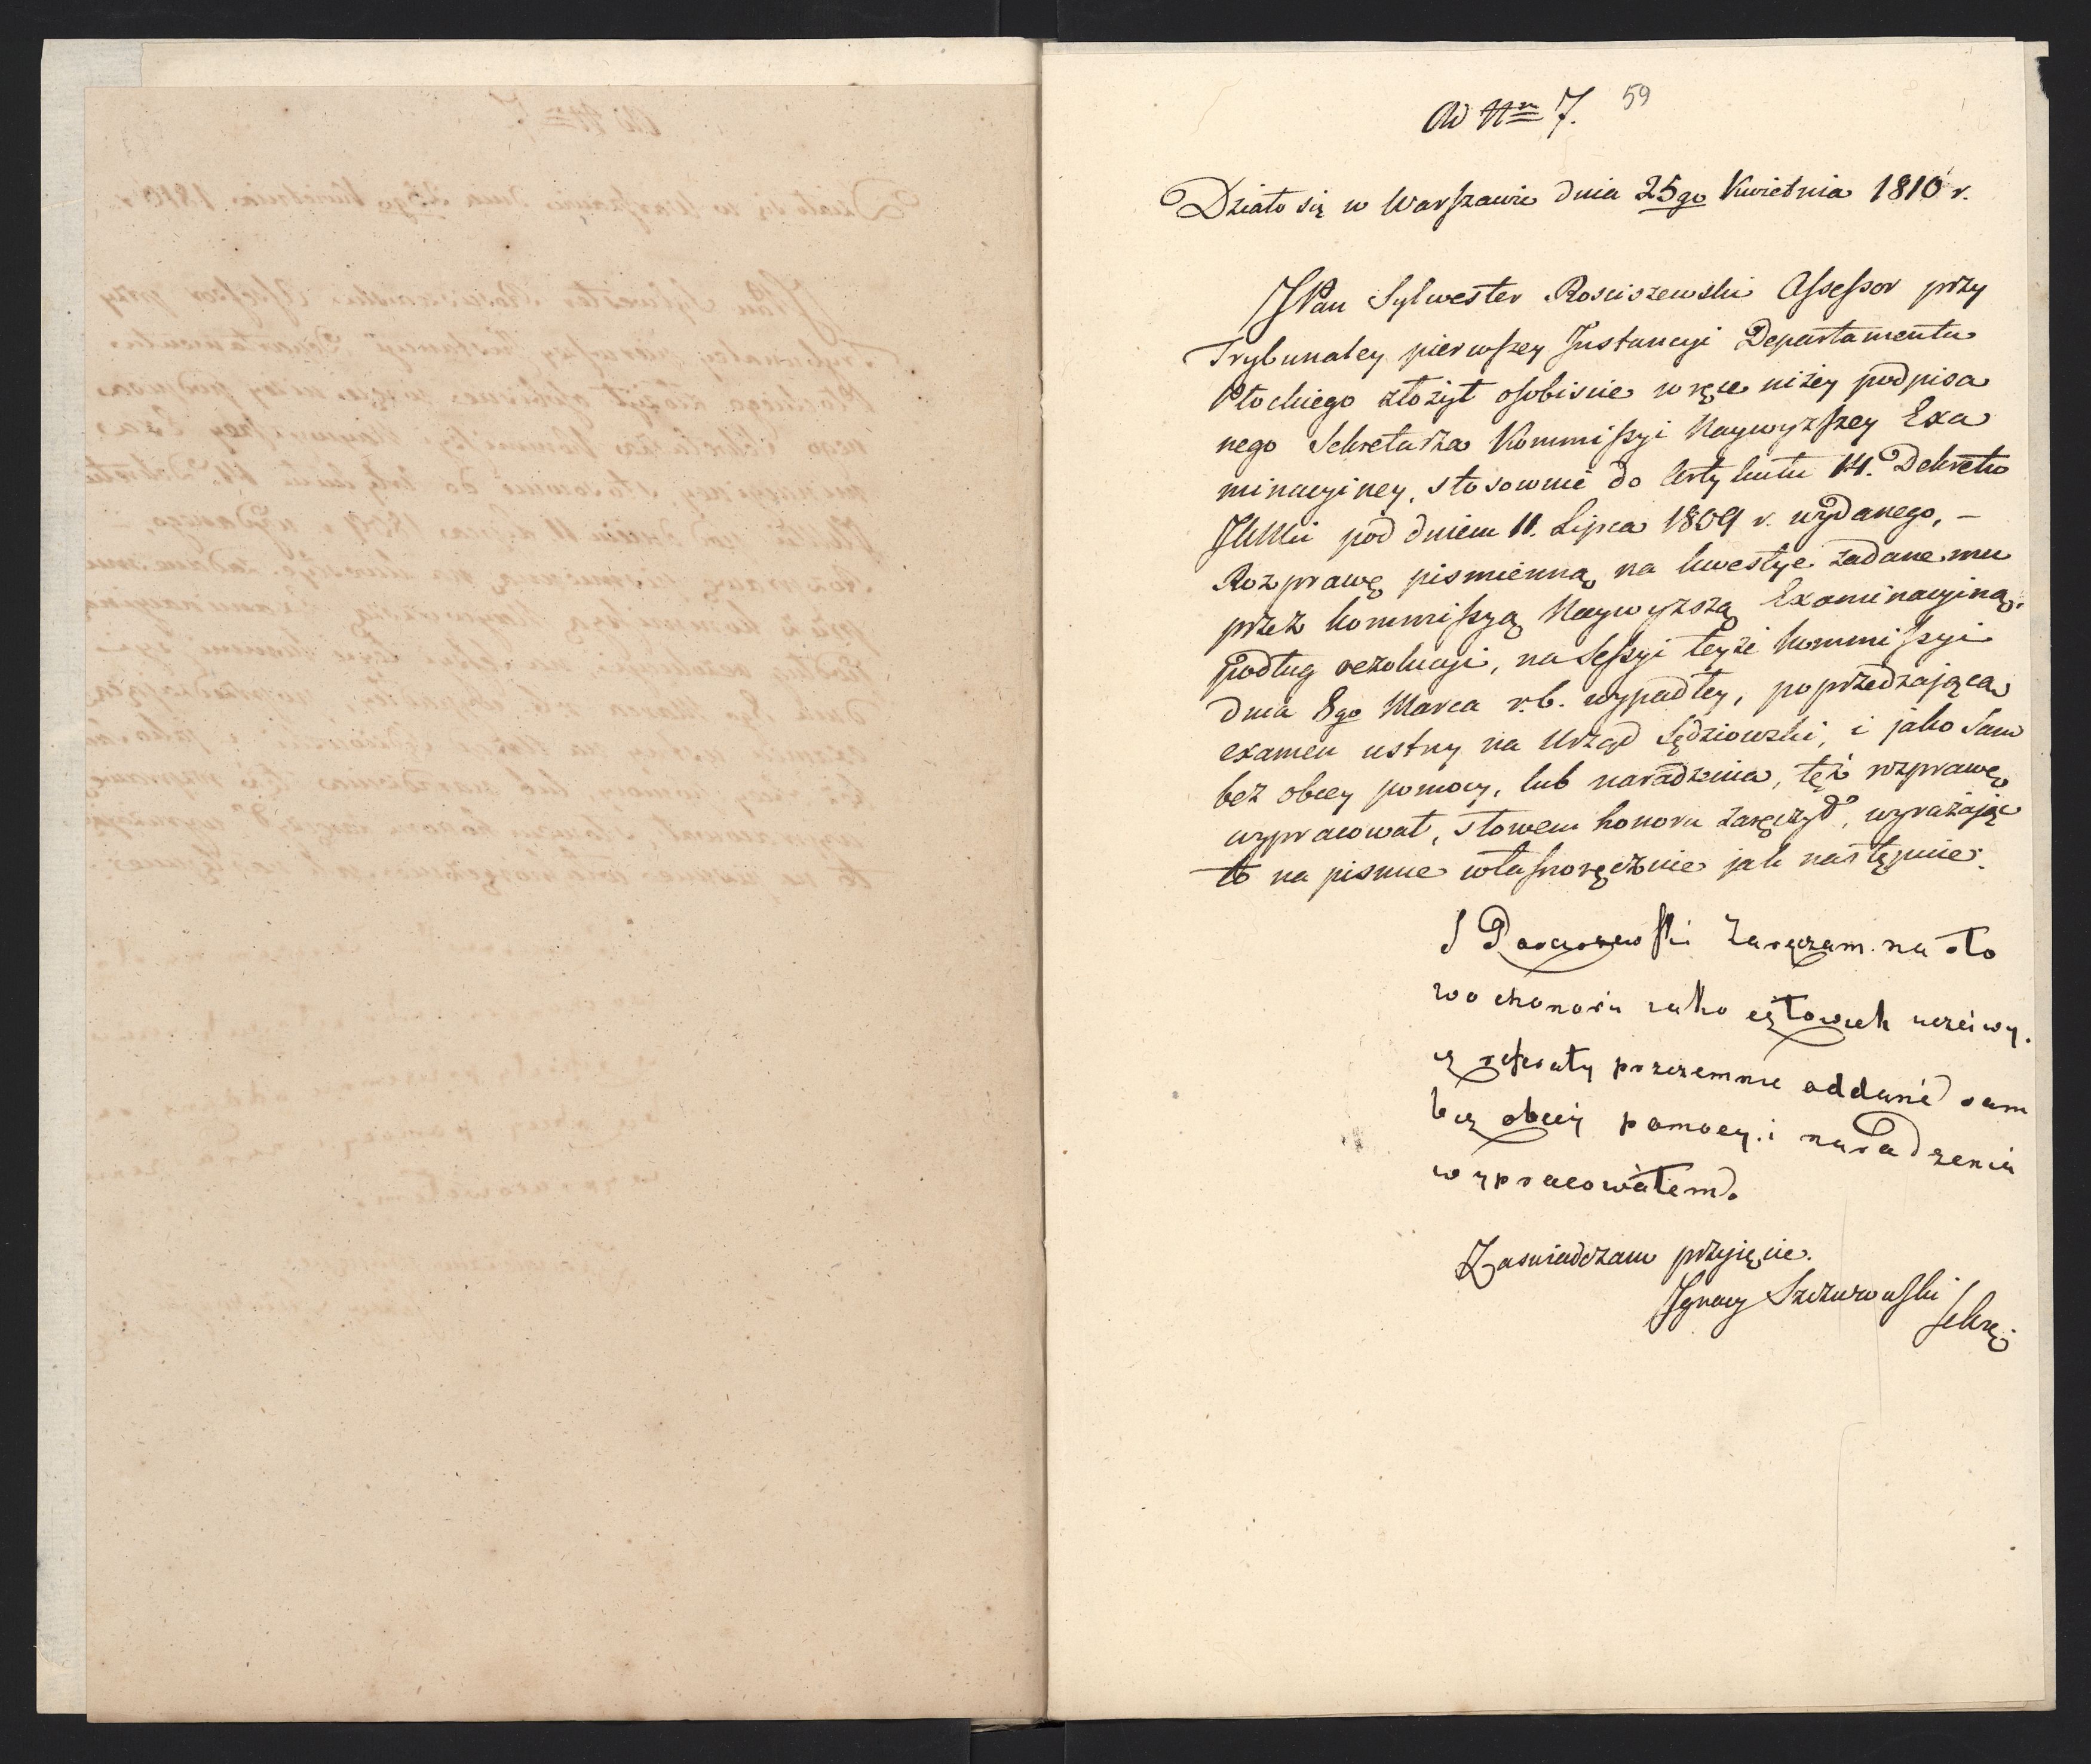 59
Ad Nrm 7.
Działo się w Warszawie dnia 25go Kwietnia 1810 r.
JPan Sylwester Rosciszewski Assessor przy
Trybunaley pierwszey Instancyi Departamentu
Płockiego złożył osobiscie w ręce niżey podpisa
nego Sekretarza Kommissyi Naywyższey Exa
minacyiney, stosownie do Artykułu 14. Dekretu
JKMci pod dniem 11. Lipca 1809 r. wydanego, –
Rozprawę pismienną na kwestye zadane mu
przez kommissyą Naywyższą Examinacyiną,
podług rezolucyi, na Sessyi teyże kommissyi
dnia 8go Marca r.b. wypadłey, poprzedzającą
examen ustny na Urząd Sędziowski, i jako sam
bez obcey pomocy, lub naradzenia, tęż rozprawę
wypracował, słowem honoru zaręczył, wyrażając
to na pismie własnoręcznie jak następuie:
S Rosciszewski Zaręczam na sło
wo chonoru iako człowiek uczciwy.
iz referaty przezemnie oddane sam
bez obcey pomocy i naradzenia
wypracowałem.
Zaswiadczam przyięcie.
Ignacy Szczurowski
Sekrę: